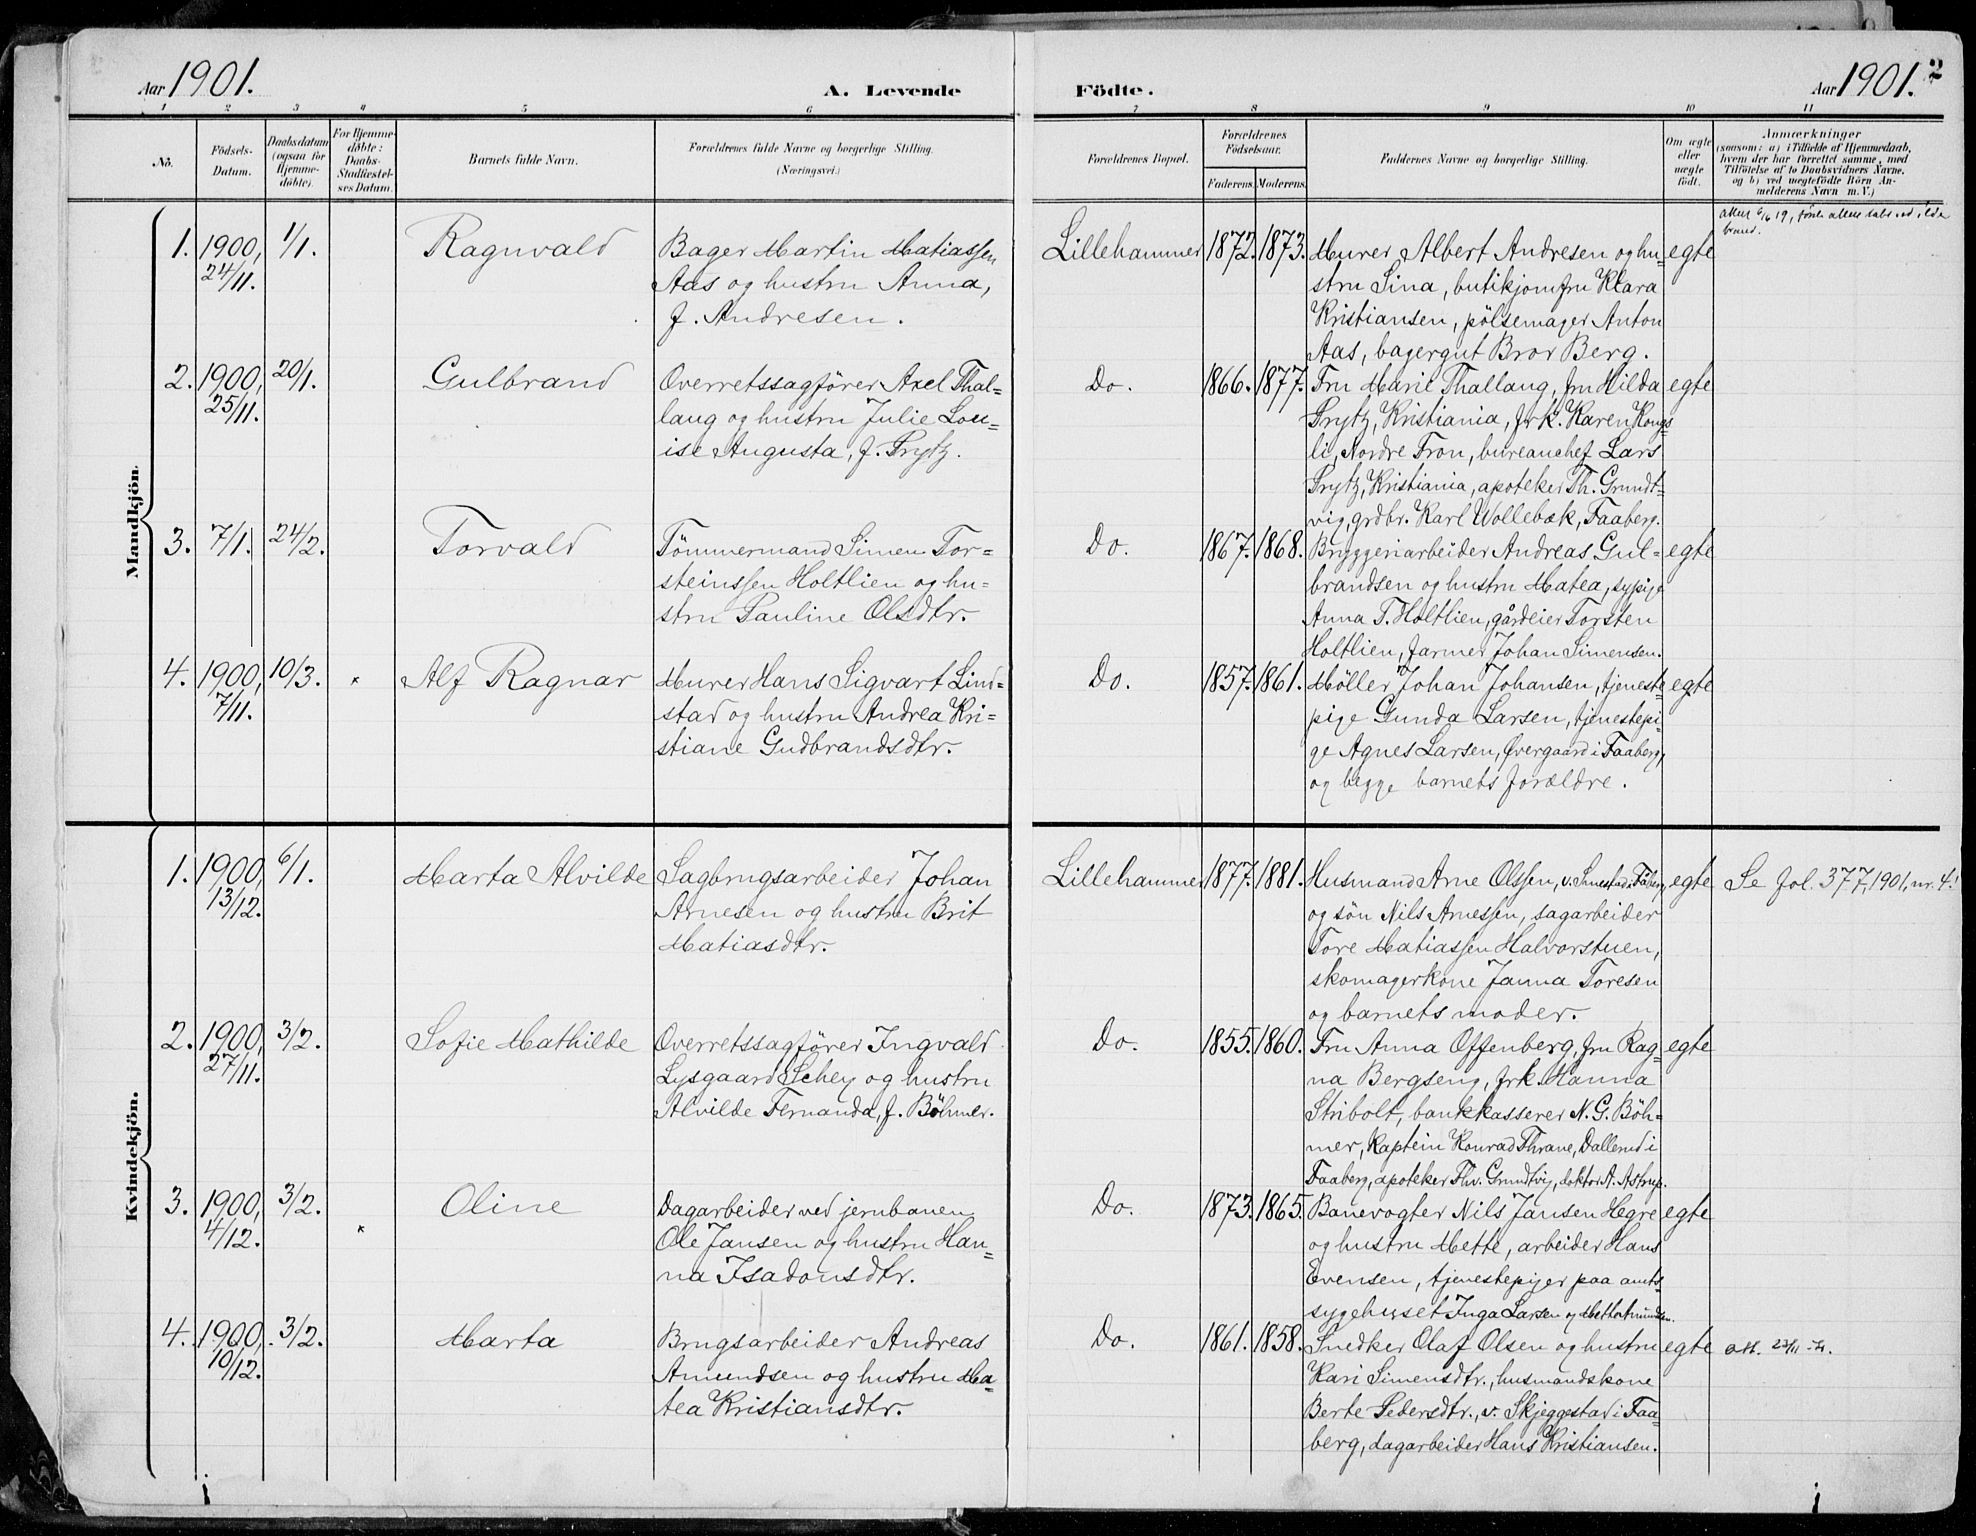 Aar 1901. A. Levende Födte. Aar 1901. 2
1 2 3 4 5 6 7 8 9 10 11
No. Födsels-Datum. Daabsdatum (ogsaa for Hjemme-döbte). For Hjemme-döbte: Daabs-Stadfæstel-ses Datum. Barnets fulde Navn. Forældrenes fulde Navne og borgerlige Stilling. (Næringsvei.) Forældrenes Bopæl. Forældrenes Födselsaar. Faderens. Moderens. Faddernes Navne og borgerlige Stilling. Om ægte eller uægte födt. Anmærkninger (saasom: a) i Tilfælde af Hjemmedaab, hvem der har forrettet samme, med Tilföielse af to Daabsvidners Navne. og b) ved uægtefödte Börn An-melderens Navn m. V.)
Mandkjön.
1. 1900, 24/11. 1/1. Ragnvald
Bager Martin Matiassen
Aas og hustru Anna,
f. Andresen.
Lillehammer 1872. 1873.
Murer Albert Andresen og hu=
stru Sina, butikjomfru Klara
Kristiansen, pölsemager Anton
Aas, bagergut Bror Berg.
egte
2. 1900, 25/11. 20/1. Gulbrand
Overretssagförer Axel Thal=
laug og hustru Julie Lou=
ise Augusta, f. Prytz.
Do. 1866. 1877.
Fru Marie Thallaug, fru Hilda
Prytz, Kristiania, frk. Karen Kongs
li, Nordre Fron, bureauchef Lars
Prytz, Kristiania, apoteker Th. Grundt=
vig, grdbr. Karl Wollebæk, Faaberg.
egte
3. 7/1. 24/2. Torvald
Tömmermand Simen Tor=
steinssen Holtlien og hu=
stru Pauline Olsdtr.
Do. 1867. 1868.
Bryggeriarbeider Andreas Gul=
brandsen og hustru Matea, sypige
Anna T. Holtlien, gårdeier Torsten
Holtlien, farmer Johan Simensen.
egte
4. 1900, 7/11. 10/3. * Alf Ragnar
Murer Hans Sigvart Lind=
stad og hustru Andrea Kri=
stiane Gudbrandsdtr.
Do. 1857. 1861.
Möller Johan Johansen, tjeneste
pige Gunda Larsen, tjenestepi=
ge Agnes Larsen, Övergaard i Faaberg,
og begge barnets forældre.
egte
Kvindekjön.
1. 1900, 13/12. 6/1. Marta Alvilde
Sagbrugsarbeider Johan
Arnesen og hustru Brit
Matiasdtr.
Lillehammer 1877. 1881.
Husmand Arne Olssen,
og sön Nils Arnessen, sagarbeider
Tore Matiassen Halvorstuen,
skomagerkone Janna Toresen
og barnets moder.
egte
Se fol. 377, 1901, nr. 4!
2. 1900, 27/11. 3/2. Sofie Mathilde
Overretssagförer Ingvald
Lysgaard Schey og hustru
Alvilde Fernanda, f. Böhmer.
Do. 1855. 1860.
Fru Anna Offenberg, fru Rag=
na Bergseng, frk. Hanna
Stribolt, bankkasserer N. G. Böh=
mer, Kaptein Konrad Thrane, Dallerud i
Faaberg, apoteker Thv. Grundtvig, doktor A. Astrup.
egte
3. 1900, 4/12. 3/2. * Oline
Dagarbeider ved jernbanen
Ole Jansen og hustru Han=
na Isadonsdtr.
Do. 1873. 1865.
Banevogter Nils Jansen Hegre
og hustru Mette, arbeider Hans
Evensen, tjenestepiger paa amts
sygehuset Inga Larsen og
egte
4. 1900, 10/12. 3/2. Marta
Brugsarbeider Andreas
Amundsen og hustru Ma=
tea Kristiansdtr.
Do. 1861. 1858.
Snedker Olaf Olsen og hustru
Kari Simensdtr., husmandskone
Berte Pedersdtr., v. Skjeggestad i Faa=
berg, dagarbeider Hans Kristiansen.
egte